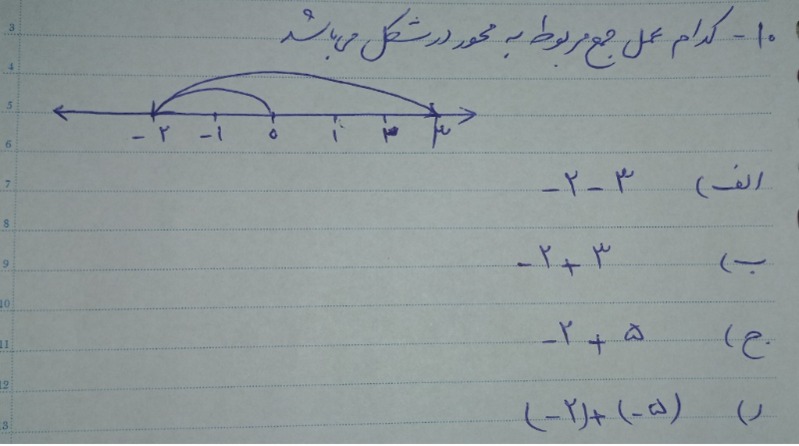 ۱۰- کدام عمل جمع مربوط به محور در شکل می‌باشد
-۲ -۱ ۰ ۱ ۲ ۳
الف) -۲-۳
ب) -۲+۳
ج) -۲+۵
د) (-۲)+(-۵)
3
4
5
6
7
8
9
10
11
12
13